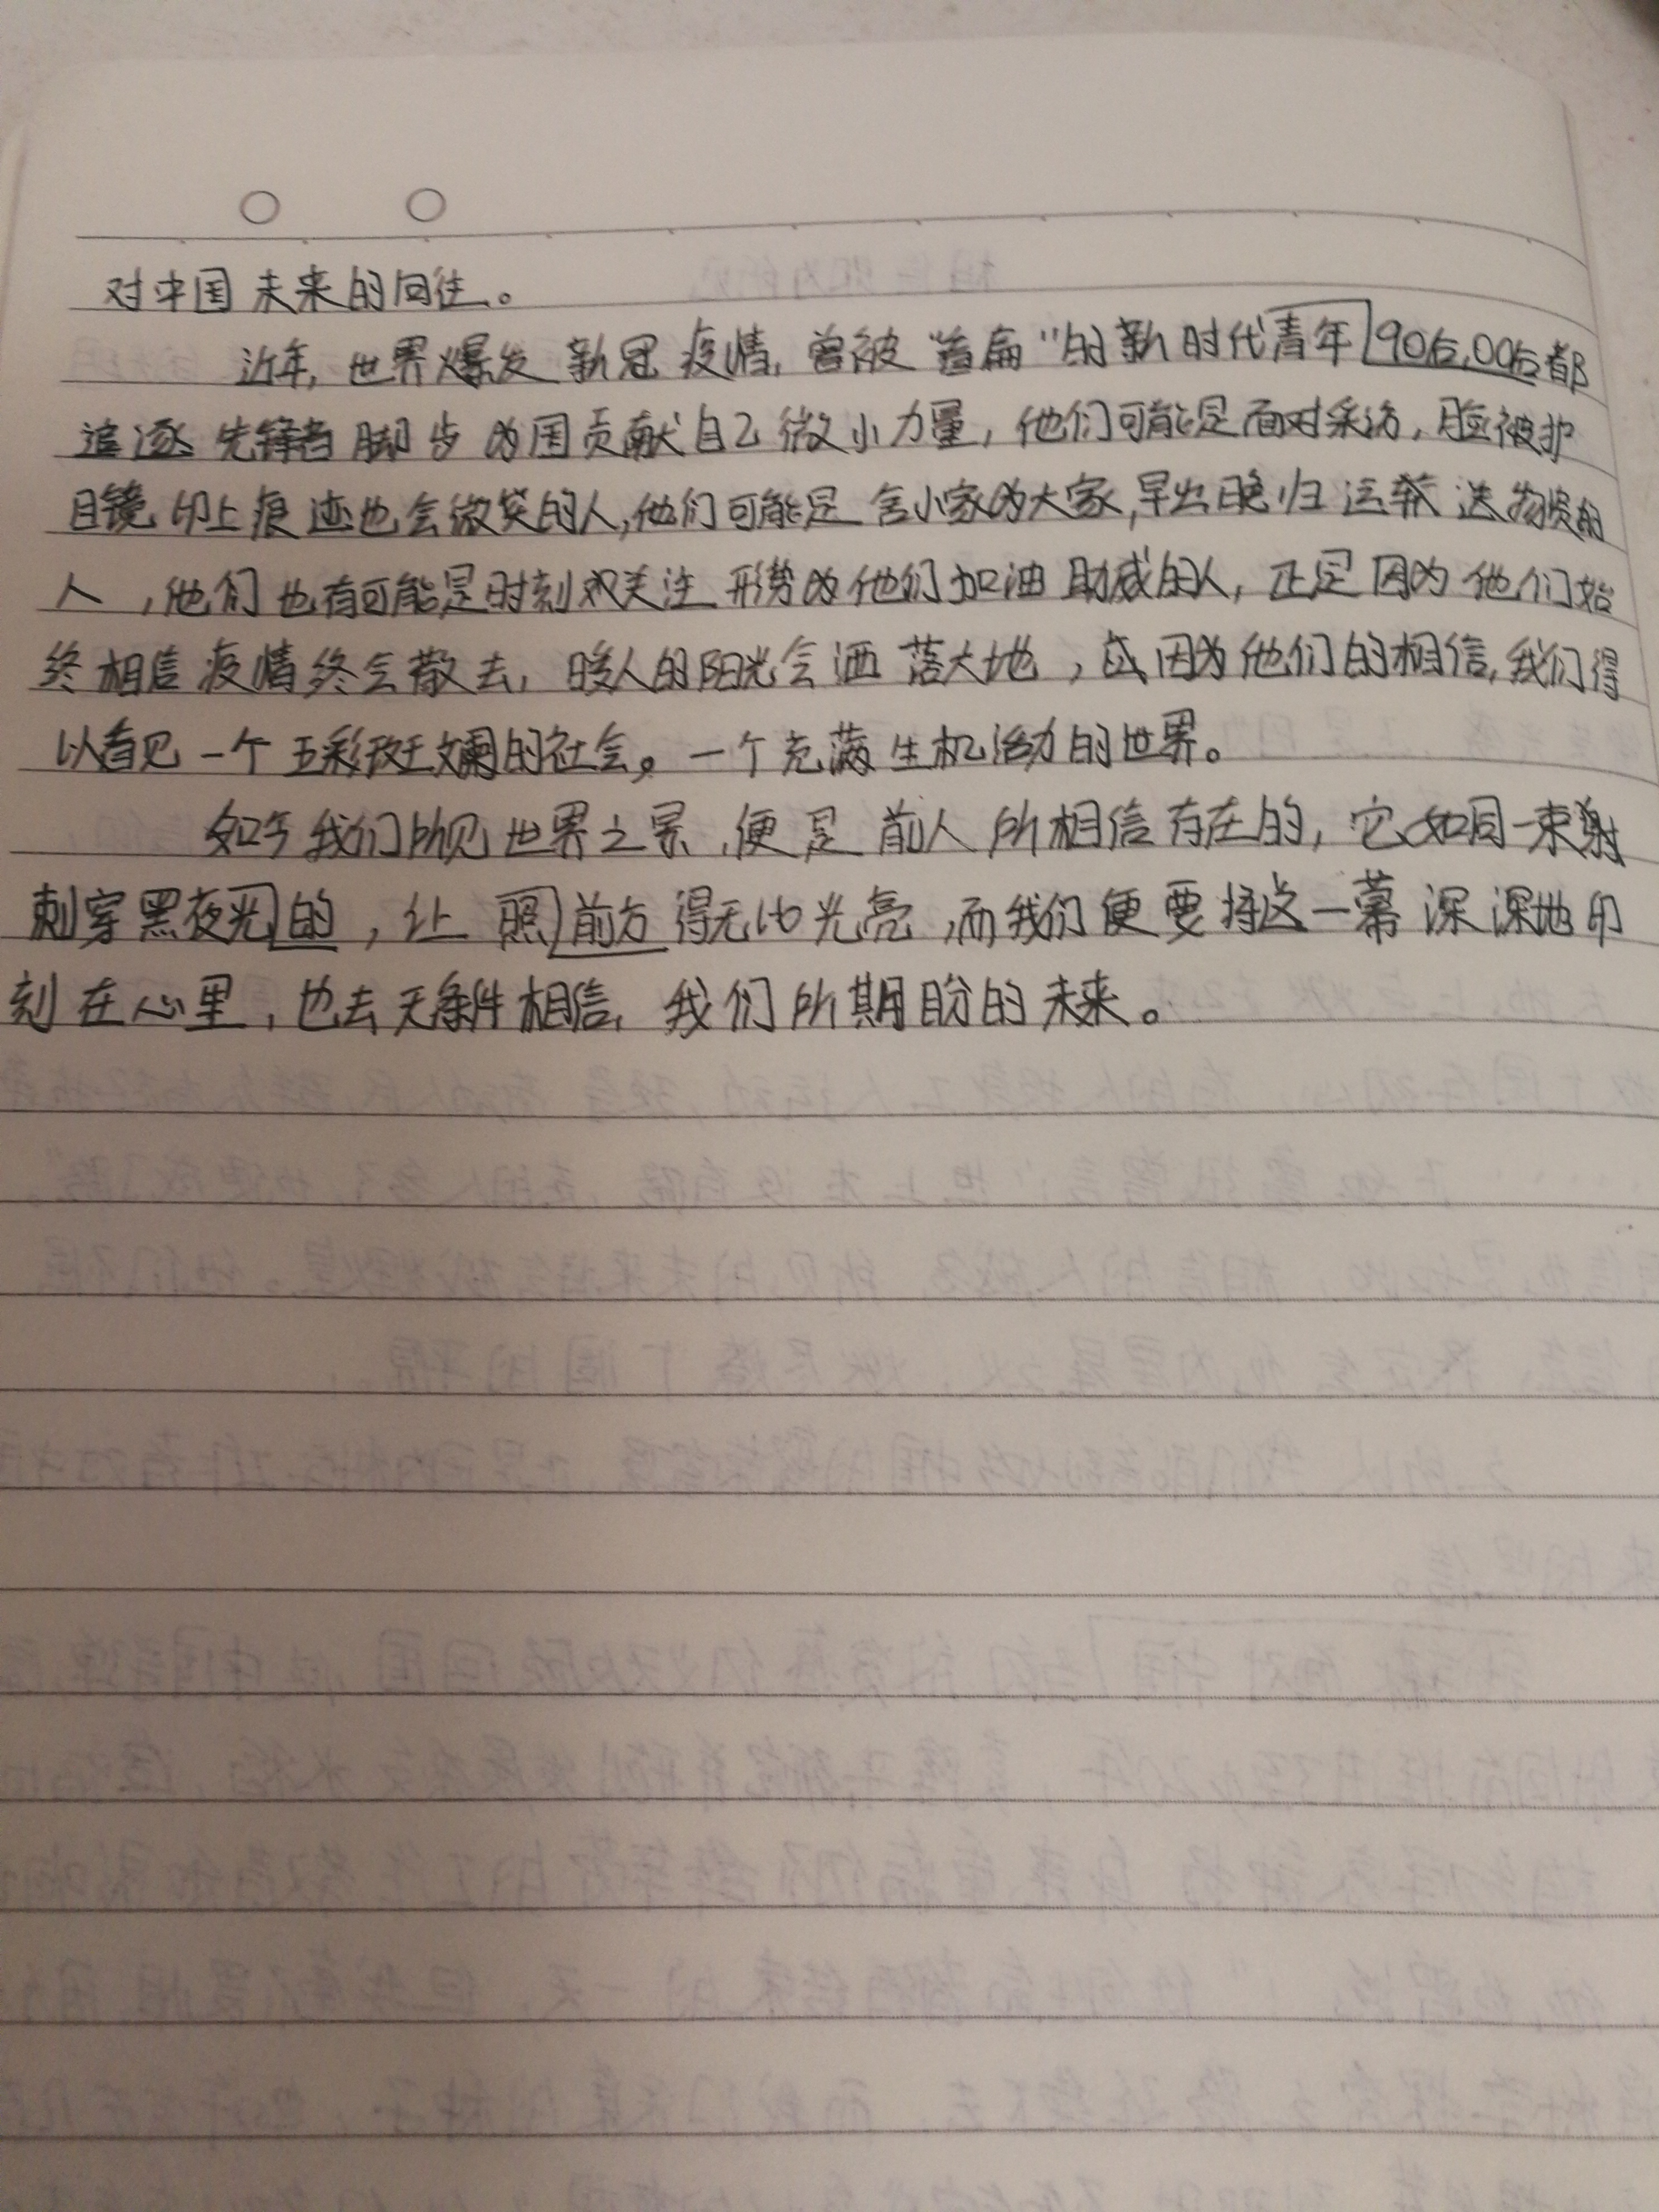 对中国未来的向往。
近年,世界爆发新冠疫情,曾被“看扁”的新时代青年90后,00后都
追逐先锋者脚步为国贡献自己微小力量,他们可能是面对采访,脸被护
目镜印上痕迹也会微笑的人,他们可能是舍小家为大家,早出晚归运载送物资的
人,他们也有可能是时刻关注形势为他们加油助威的人,正是因为他们始
终相信疫情终会散去,暖人的阳光会洒落大地,因为他们的相信,我们得
以看见一个五彩斑斓的社会。一个充满生机活力的世界。
如今我们所见世界之景,便是前人所相信存在的,它如同一束射
刺穿黑夜光的,让照前方得无比光亮,而我们便要将这一幕深深地印
刻在心里,也去无条件相信,我们所期盼的未来。